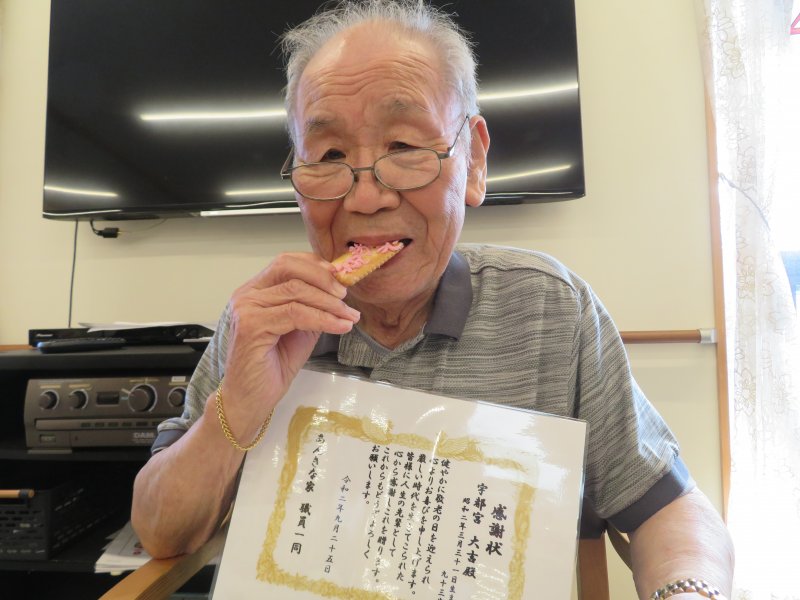 感謝状
昭和二年三月三十一日生
九十三
宇都宮 大吉殿
健やかに敬老の日を迎えられ
心よりお喜びを申し上げます。
厳しい時代を
皆様に人生の先輩として
心から感謝しこれを贈ります。
これからもどうぞよろしく
お願いします。
令和二年九月二十五日
あんきな家 職員一同
DAM